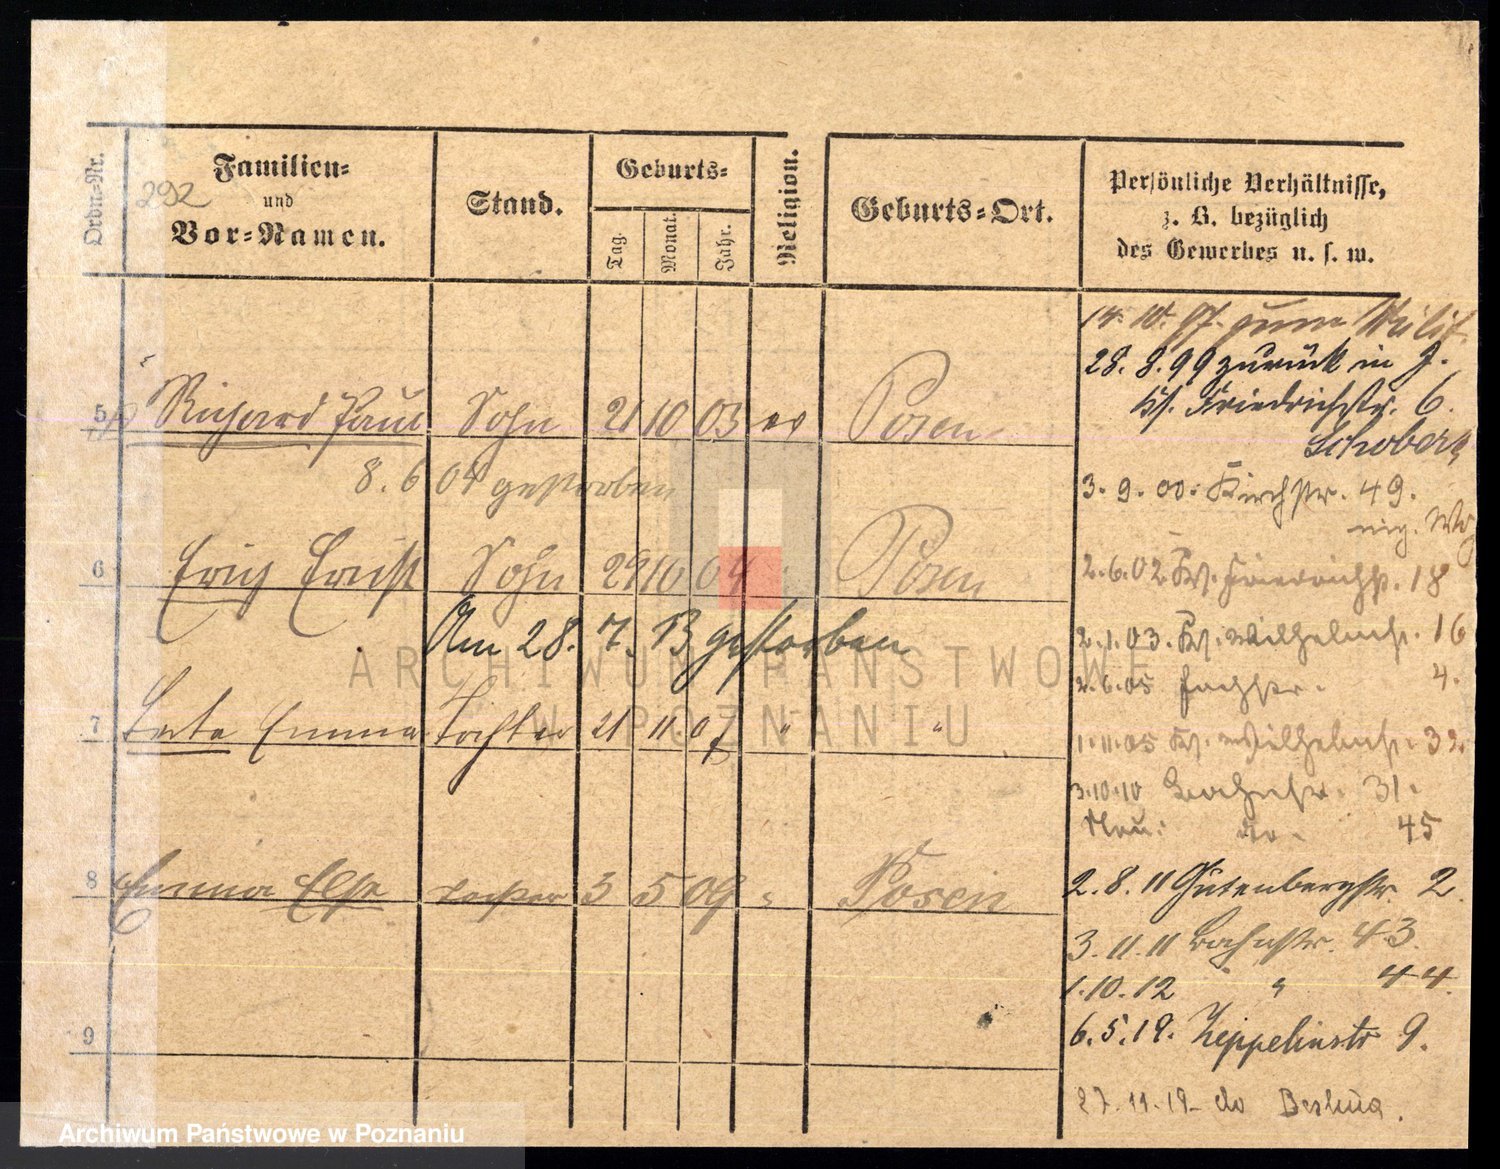 Ordn=Nr.
292
Familien=
und
Vor=Namen.
Stand.
Geburts=
Tag.
Monat.
Jahr.
Religion.
Geburts=Ort.
Persönliche Verhältnisse,
z. B. bezüglich
des Gewerbes u. s. w.
14. 10. 97. zum Milit.
28. 8. 99 zurück in J.
Friedrichstr. 6.
5 Richard Paul Sohn 21 10 03 ev Posen
Schober
8. 6 04 gestorben
3. 9. 00. Kirchstr. 49.
6 Erich Ernst Sohn 29 10 04 Posen
2. 6. 02 Friedrichst. 18
Am 28. 7. 13 gestorben
2. 1. 03. Wilhelmst. 16
2. 6. 05 4.
7 Berta Emma Tochter 21 11. 07 " "
1. 11. 05 Wilhelmst. 32.
3. 10. 10 31.
do. 45
8 Emma Else Tochter 3 5 09 " Posen
2. 8. 11 Gutenbergstr. 2.
3. 11. 11 Bahnstr. 43.
1. 10. 12 " 44.
9
6. 5. 19. Zeppelinstr 9.
27. 11. 19 do
ARCHIWUM PAŃSTWOWE
W POZNANIU
Archiwum Państwowe w Poznaniu